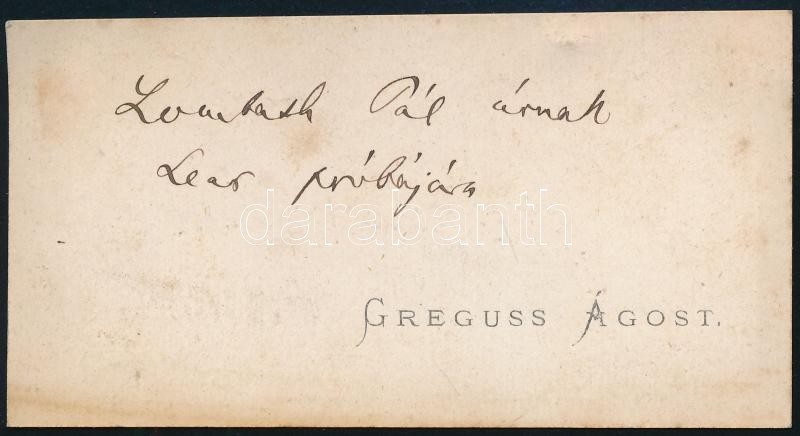 Lombath Pál úrnak
Lear próbájára
darabanth
GREGUSS ÁGOST.